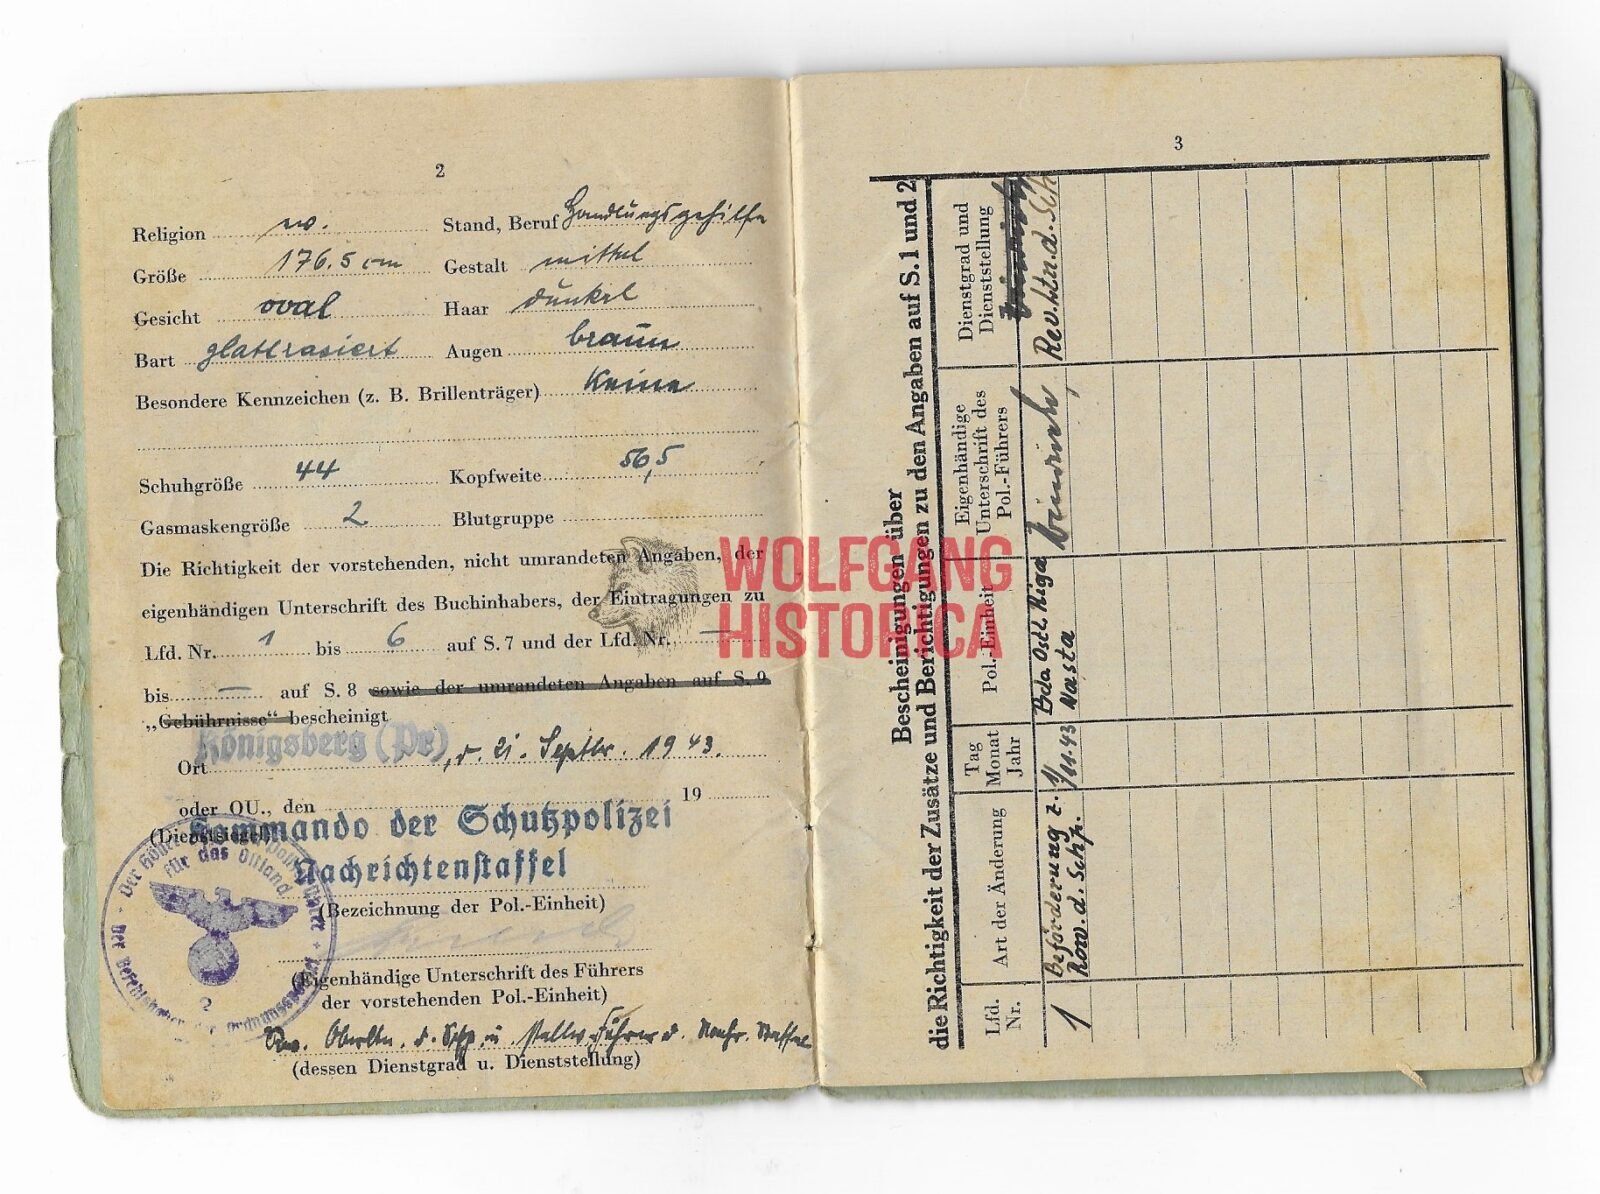 2
Religion Stand, Beruf Handlungsgehilfe
Größe 176.5 cm Gestalt mittel
Gesicht oval Haar dunkel
Bart glattrasiert Augen braun
Besondere Kennzeichen (z. B. Brillenträger) Keine
Schuhgröße 44 Kopfweite 56,5
Gasmaskengröße 2 Blutgruppe
Die Richtigkeit der vorstehenden, nicht umrandeten Angaben, der
eigenhändigen Unterschrift des Buchinhabers, der Eintragungen zu
Lfd. Nr. 1 bis 6 auf S. 7 und der Lfd. Nr. —
bis — auf S. 8 sowie der umrandeten Angaben auf S. 9
„Gebührnisse“ bescheinigt
Königsberg (Pr)
Ort , d. 21. Septbr. 1943.
oder OU., den 19
(Dienstsiegel)
Kommando der Schutzpolizei
Nachrichtenstaffel
(Bezeichnung der Pol.-Einheit)
(Eigenhändige Unterschrift des Führers
der vorstehenden Pol.-Einheit)
Oberltn. d. Schp. u. Führer d. Nachr. Staffel
(dessen Dienstgrad u. Dienststellung)
für das Ostland
Der Befehlshaber der Ordnungspolizei
2
WOLFGANG
HISTORICA
3
Bescheinigungen über
die Richtigkeit der Zusätze und Berichtigungen zu den Angaben auf S. 1 und 2
Lfd. Nr.
Art der Änderung
Tag Monat Jahr
Pol.-Einheit
Eigenhändige Unterschrift des Pol.-Führers
Dienstgrad und Dienststellung
1
Beförderung z.
Row. d. Schp.
1/11.43
Bda Ostl. Riga
Nasta
Rev. Ltn. d. Sch